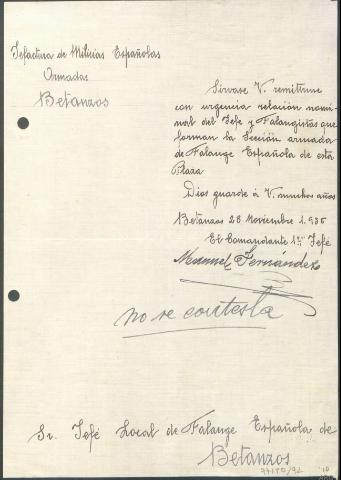 Jefactura de Milicias Españolas
Armadas
Betanzos
Sírvase V. remitirme
con urgencia relación nomi-
nal del Jefe y Falangistas que
forman la Sección armada
de Falange Española de esta
Plaza
Dios guarde á V. muchos años
Betanzos 28 Noviembre 1.936
El Comandante 1er Jefé
Manuel Fernández
no se contesta
Sr. Jefé Local de Falange Española de
Betanzos